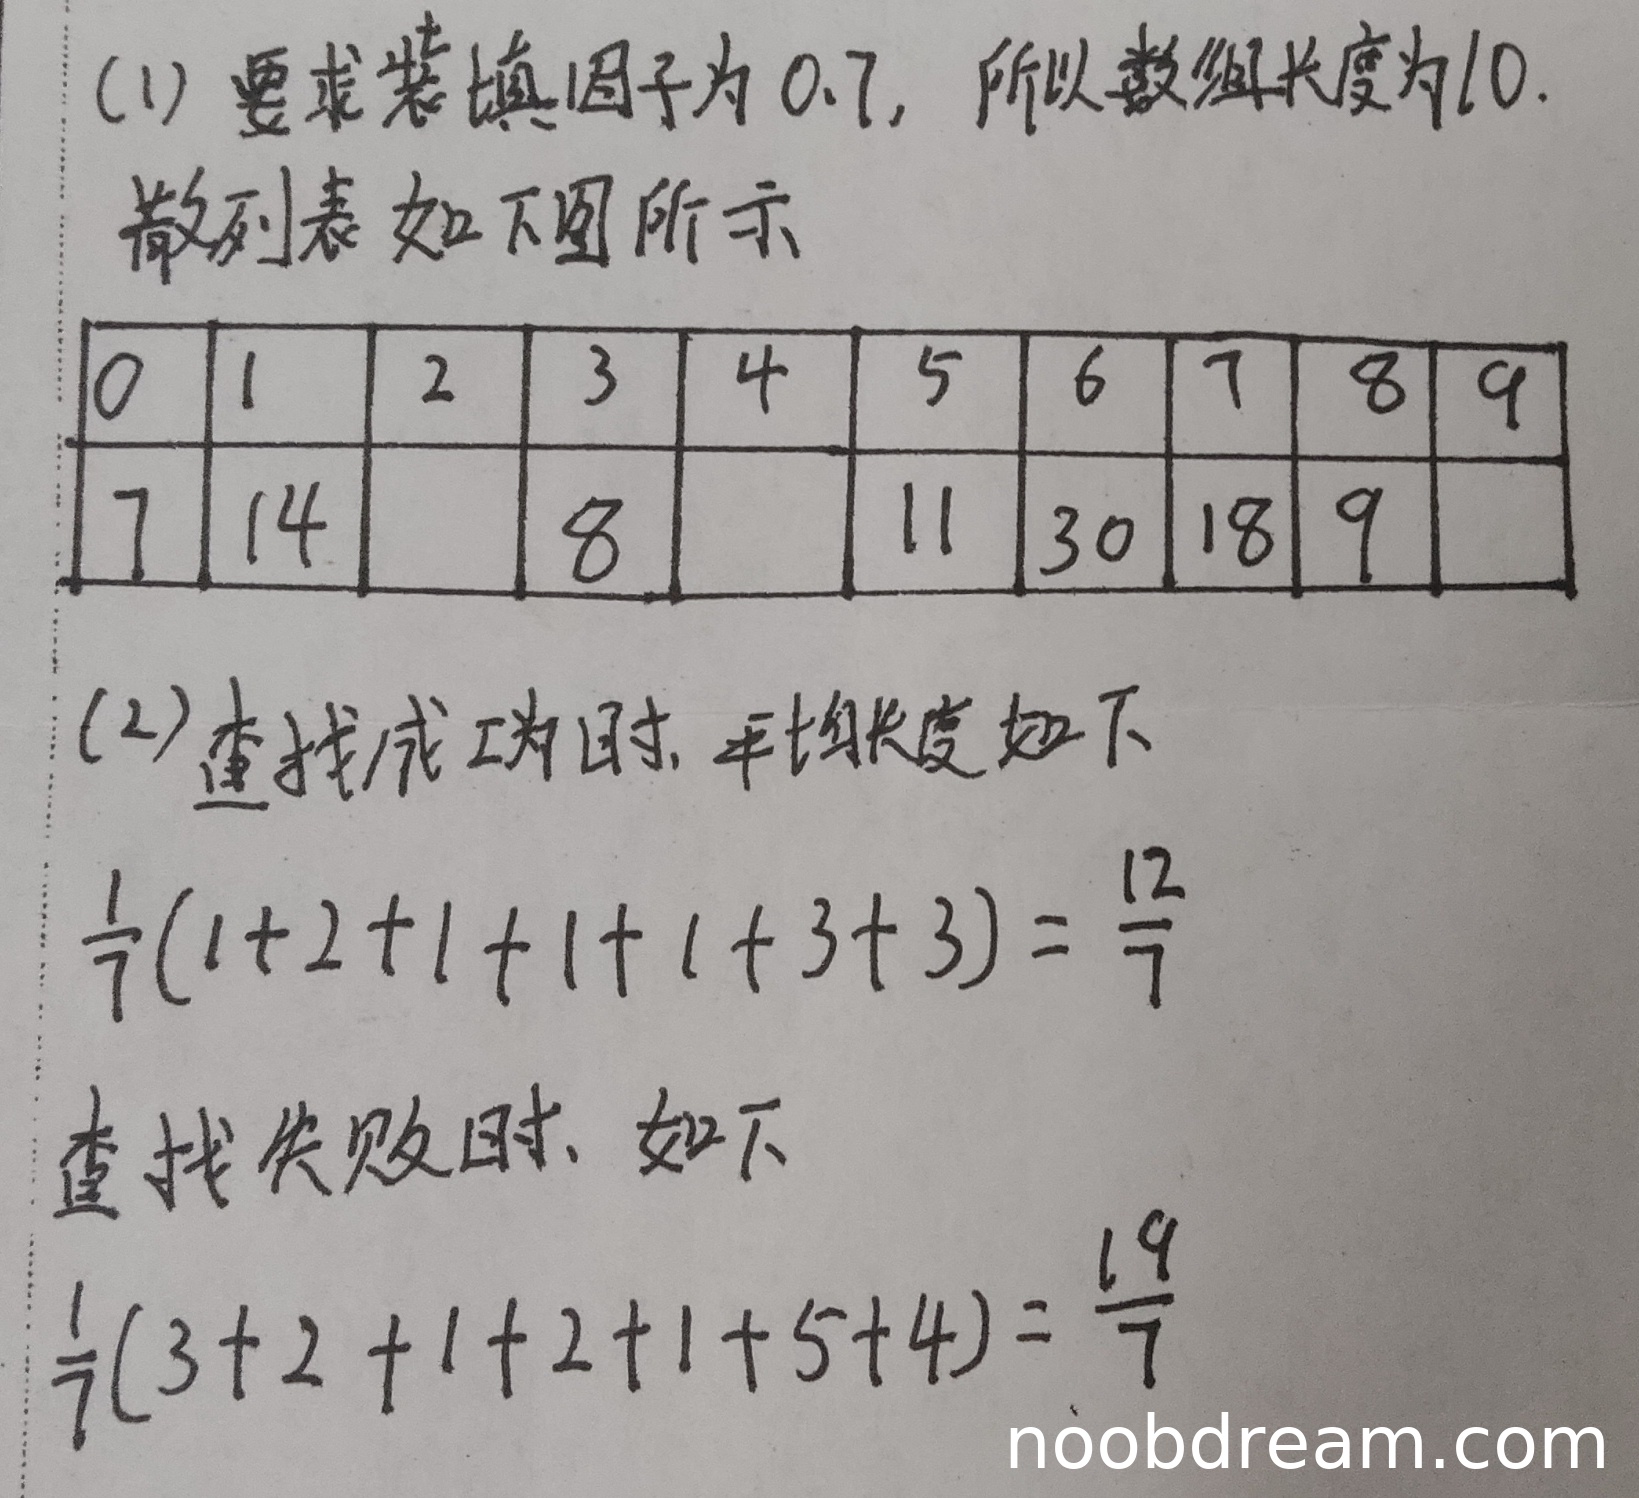 (1) 要求装填因子为0.7, 所以数组长度为10.
散列表如下图所示
0 1 2 3 4 5 6 7 8 9
7 14 8 11 30 18 9
(2) 查找成功时、平均长度如下
1/7(1+2+1+1+1+3+3)=12/7
查找失败时、如下
1/7(3+2+1+2+1+5+4)=19/7
noobdream.com